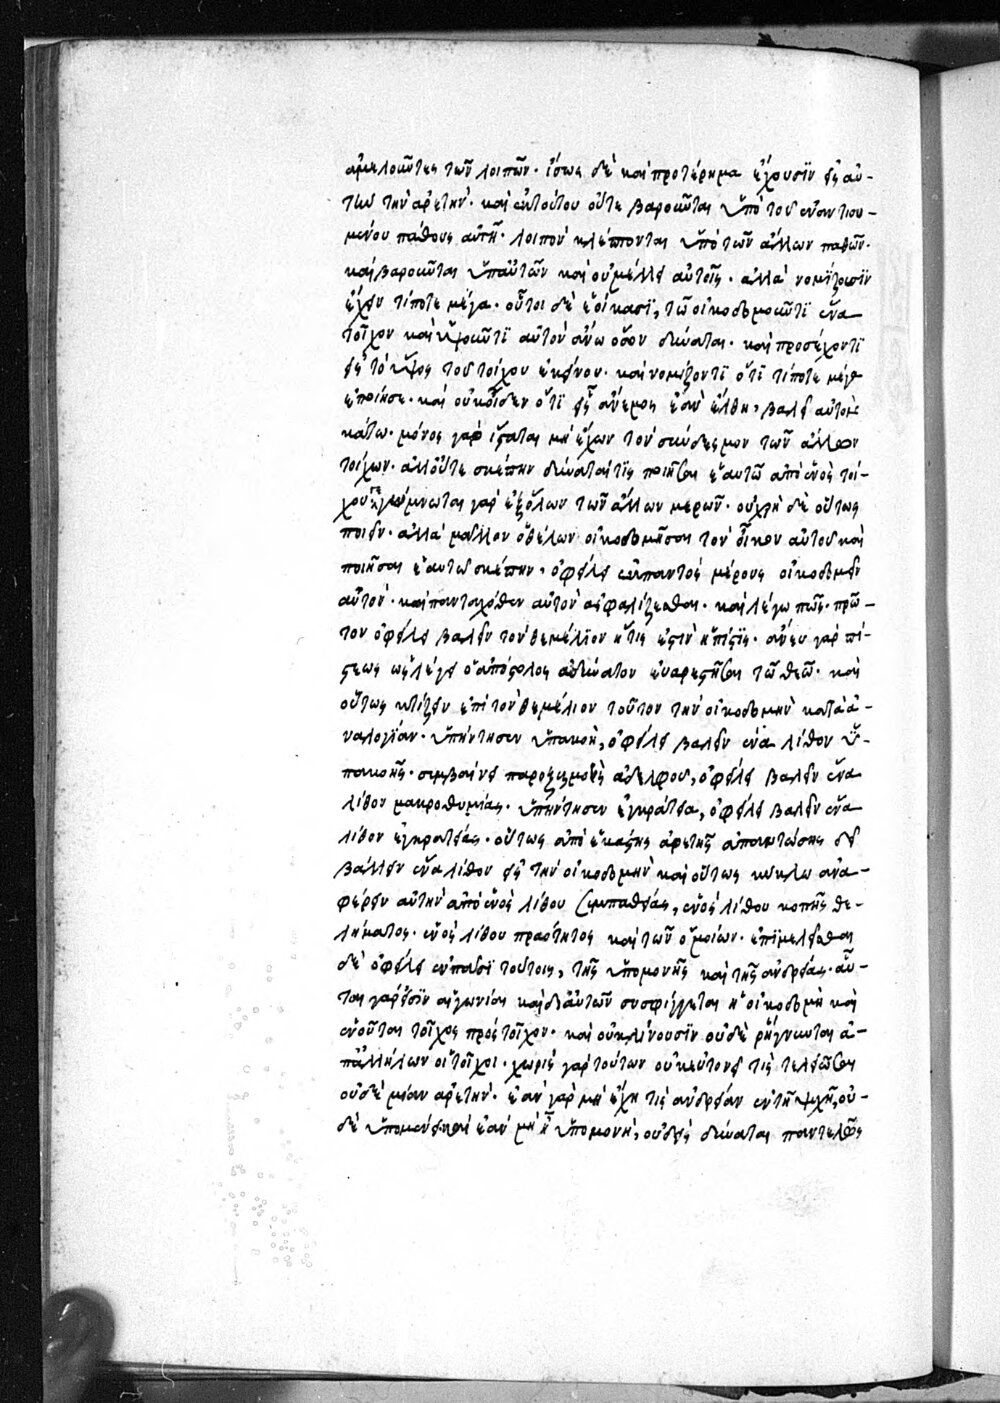 ἀμελοῦντες τῶν λοιπῶν· ἴσως δὲ καὶ προτέρημα ἔχουσιν εἰς αὐ-
τὴν τὴν ἀρετὴν· καὶ ἐκ τούτου οὔτε βαροῦνται ὑπὸ τοῦ ἐναντιου-
μένου πάθους αὐτῇ· λοιπὸν κλέπτονται ὑπὸ τῶν ἄλλων παθῶν·
καὶ βαροῦνται ὑπ' αὐτῶν καὶ οὐ μέλλει αὐτοῖς· ἀλλὰ νομίζουσιν
ἔχειν τίποτε μέγα· οὗτοι δὲ ἐοίκασι, τῶ οἰκοδομοῦντι ἕνα
τοῖχον καὶ ὑψοῦντι αὐτὸν ἄνω ὅσον δύναται· καὶ προσέχοντι
εἰς τὸ ὕψος τοῦ τοίχου ἐκείνου· καὶ νομίζοντι ὅτι τίποτε μέγα
ἐποίησε· καὶ οὐκ οἶδεν ὅτι εἷς ἄνεμος ἐὰν ἔλθη, βαλεῖ αὐτὸν
κάτω· μόνος γὰρ ἵσταται μὴ ἔχων τὸν σύνδεσμον τῶν ἄλλων
τοίχων· ἀλλ' οὔτε σκέπην δύναταί τις ποιῆσαι ἑαυτῶ ἀπὸ ἑνὸς τοί-
χου· γεγύμνωται γὰρ ἐξ ὅλων τῶν ἄλλων μερῶν· οὐ χρὴ δὲ οὕτως
ποιεῖν· ἀλλὰ μᾶλλον ὁ θέλων οἰκοδομῆσαι τὸν οἶκον αὐτοῦ καὶ
ποιῆσαι ἑαυτῶ σκέπην, ὀφείλει ἐκ παντὸς μέρους οἰκοδομεῖν
αὐτόν· καὶ πανταχόθεν αὐτὸν ἀσφαλίζεσθαι· καὶ λέγω πῶς· πρῶ-
τον ὀφείλει βαλεῖν τὸν θεμέλιον ἥτις ἐστὶν ἡ πίστις· ἄνευ γὰρ πί-
στεως ὡς λέγει ὁ ἀπόστολος ἀδύνατον εὐαρεστῆσαι τῶ θεῶ· καὶ
οὕτως κτίζειν ἐπὶ τὸν θεμέλιον τοῦτον τὴν οἰκοδομὴν κατὰ ἀ-
ναλογίαν· ὑπήντησεν ὑπακοὴ, ὀφείλει βαλεῖν ἕνα λίθον ὑ-
πακοῆς· συμβαίνει παροξυσμὸς ἀδελφοῦ, ὀφείλει βαλεῖν ἕνα
λίθον μακροθυμίας· ὑπήντησεν ἐγκράτεια, ὀφείλει βαλεῖν ἕνα
λίθον ἐγκρατείας· οὕτως ἀπὸ ἑκάστης ἀρετῆς ἀπαντώσης δεῖ
βάλλειν ἕνα λίθον εἰς τὴν οἰκοδομὴν καὶ οὕτως κύκλω ἀνα-
φέρειν αὐτὴν ἀπὸ ἑνὸς λίθου συμπαθείας, ἑνὸς λίθου κοπῆς θε-
λήματος· ἑνὸς λίθου πραότητος καὶ τῶν ὁμοίων· ἐπιμελεῖσθαι
δὲ ὀφείλει ἐν πᾶσι τούτοις, τῆς ὑπομονῆς καὶ τῆς ἀνδρείας· αὗ-
ται γάρ εἰσιν αἱ γωνίαι καὶ δι' αὐτῶν συσφίγγεται ἡ οἰκοδομὴ καὶ
ἑνοῦται τοῖχος πρὸς τοῖχον· καὶ οὐ κλίνουσιν οὐδὲ ῥήγνυνται ἀ-
π' ἀλλήλων οἱ τοῖχοι· χωρὶς γὰρ τούτων οὐκ εὐτονεῖ τὶς τελειῶσαι
οὐδὲ μίαν ἀρετὴν· ἐὰν γὰρ μὴ ἔχη τὶς ἀνδρείαν ἐν τῆ ψυχῆ, οὐ-
δὲ ὑπομένει· καὶ ἐὰν μὴ ἦ ὑπομονὴ, οὐδεὶς δύναται παντελῶς